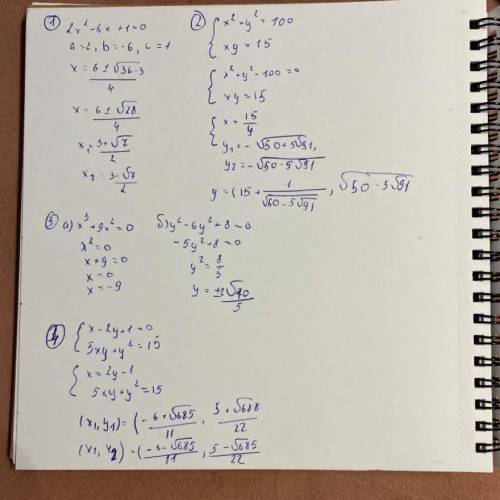 ① 2x²-6x+1=0
a=2, b=-6, c=1
x = 6 ± √36-3 / 4
x = 6 ± √28 / 4
x₁ = 3+√7 / 2
x₂ = 3-√7 / 2
② { x²+y²=100
xy=15
{ x²+y²-100=0
xy=15
{ x = 15/y
y₁=-√50+5√91,
y₂=-√50-5√91
y=(15+ 1/√50-5√91 , √50-5√91
③ а) x³+9x²=0
x²=0
x+9=0
x=0
x=-9
б) y²-6y²+8=0
-5y²+8=0
y² = 8/5
y = ±2√10 / 5
④ { x-2y+1=0
5xy+y²=15
{ x=2y-1
5xy+y²=15
(x₁, y₁) = (-6+√685 / 11 , 5+√688 / 22
(x₂, y₂) = (-6-√685 / 11 , 5-√685 / 22